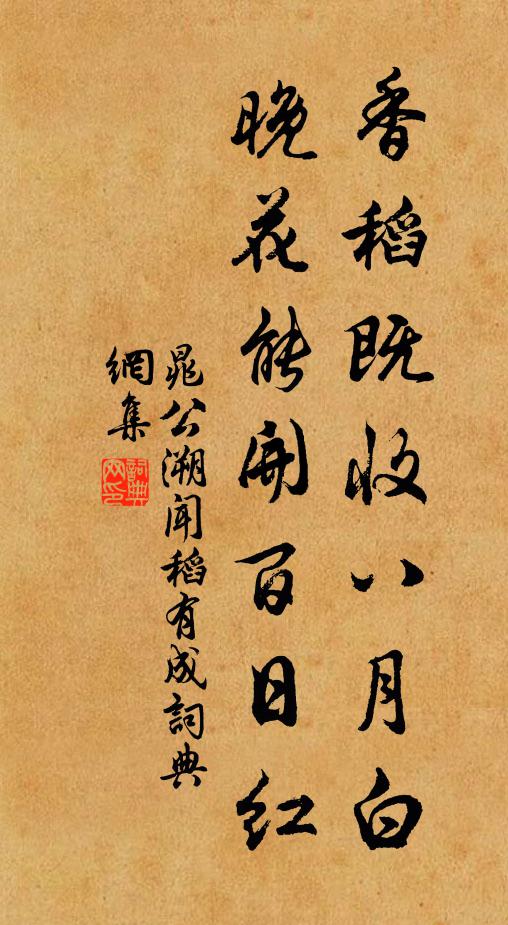 香稻既收八月白
晚花能開百日红
晁公溯闻稻有成詞典
網集
詞典
网印